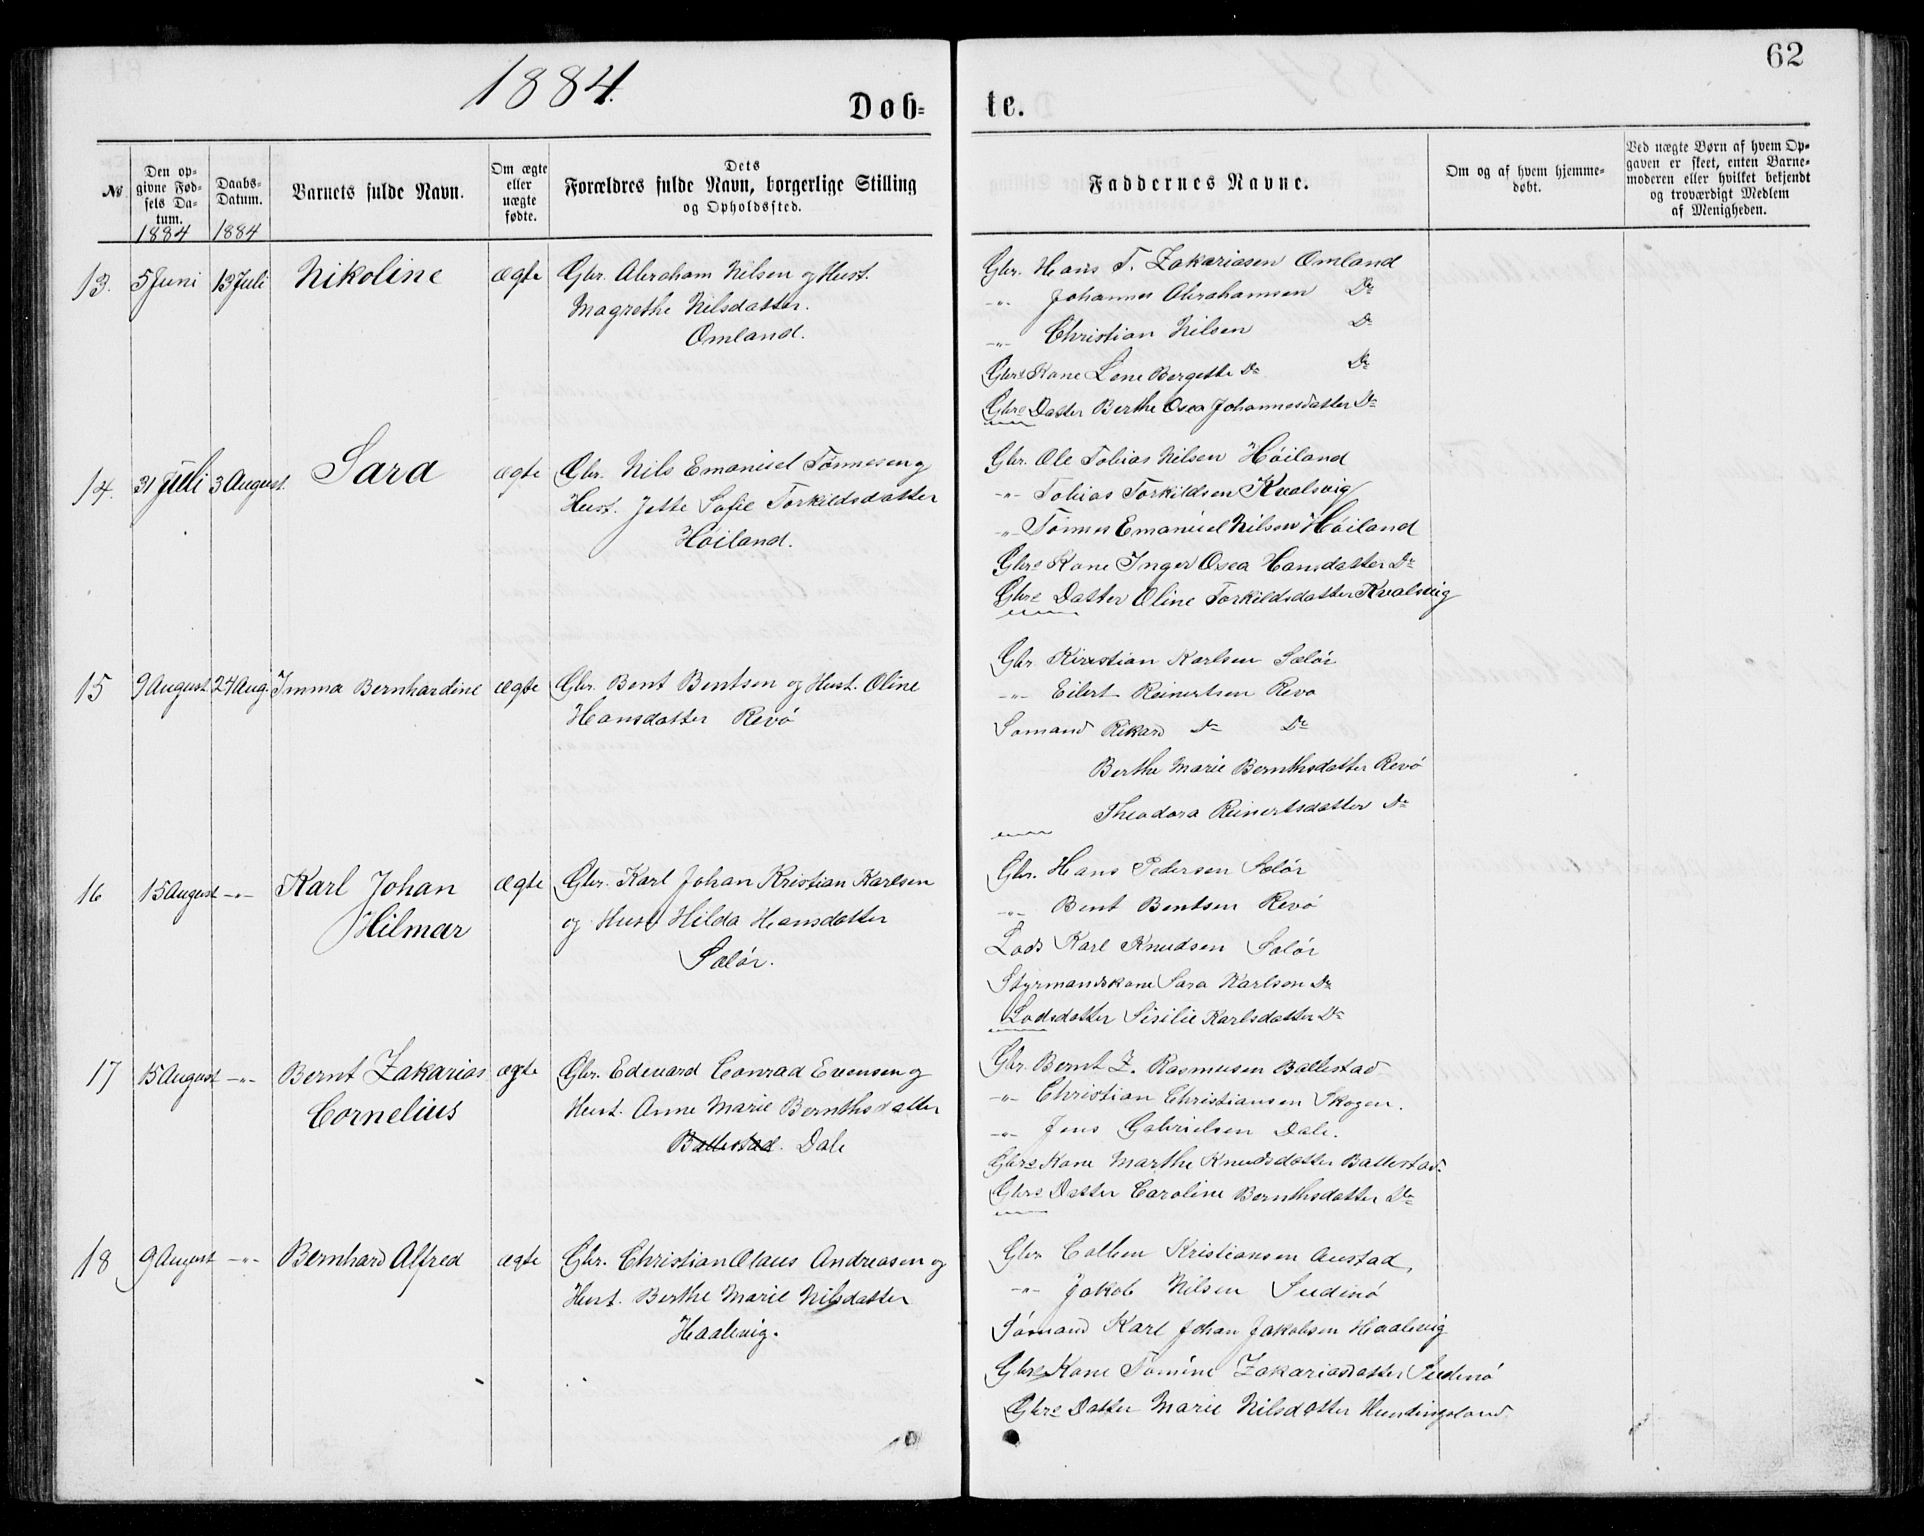 62
1884.
Døb-
te.
No
Den op-
givne Fød-
sels Da-
tum.
1884
Daabs-
Datum.
1884
Barnets fulde Navn.
Om ægte
eller
uægte
fødte.
Dets
Forældres fulde Navn, borgerlige Stilling
og Opholdssted.
Faddernes Navne.
Om og af hvem hjemme-
døbt.
Ved uægte Børn af hvem Op-
gaven er skeet, enten Barne-
moderen eller hvilket bekjendt
og troværdigt Medlem
af Menigheden.
13. 5 Juni 13 Juli Nikoline ægte Gbr. Abraham Nilsen og Hust.
Magrethe Nilsdatter.
Omland.
Gbr. Hans T. Zakariasen Omland
-"- Johannes Abrahamsen Do
-"- Christian Nilsen Do
Gbrs Kone Lene Bergitte Do Do
Gbrs Datter Berthe Osea Johannesdatter Do
14. 31 Juli 3 August. Sara ægte Gbr. Nils Emanuel Tønnesen og
Hust. Jette Sofie Torkildsdatter
Høiland.
Gbr. Ole Tobias Nilsen Høiland
-"- Tobias Torkildsen Kvalsvig
-"- Tønnes Emanuel Nilsen Høiland
Gbrs Kone Inger Osea Hansdatter Do
Gbrs Datter Oline Torkildsdatter Kvalsvig
15 9 August 24 Aug. Imma Bernhardine ægte Gbr. Bent Bentsen og Hust. Oline
Hansdatter Revø
Gbr. Kirestian Karlsen Sælør
-"- Eilert Reinertsen Revø
Sømand Rikard Do Do
Berthe Marie Bernthsdatter Revø
Theodora Reinertsdatter Do
16 15 August -"- Karl Johan
Hilmar
ægte Gbr. Karl Johan Kristian Karlsen
og Hust Hilda Hansdatter
Sælør.
Gbr. Hans Pedersen Sælør
-"- Bent Bentsen Revø
Lods Karl Knudsen Sælør
Styrmandskone Sara Karlsen Do
Lodsdatter Sisilie Karlsdatter Do
17 15 August -"- Bernt Zakarias
Cornelius
ægte Gbr. Edevard Conrad Evensen og
Hust. Anne Marie Bernthsdatter
Ballestad. Dale
Gbr. Bernt Z. Rasmusen Ballestad
-"- Christian Christiansen Skogen.
-"- Jens Gabrielsen Dale.
Gbrs Kone Marthe Knudsdatter Ballestad
Gbrs Datter Caroline Bernthsdatter Do
18 9 August -"- Bernhard Alfred ægte Gbr. Christian Olaus Andreasen og
Hust. Berthe Marie Nilsdatter
Haalevig.
Gbr Kristiansen Austad,
-"- Jakob Nilsen Sudinø
Sømand Karl Johan Jakobsen Haalevig
Gbrs Kone Tomine Zakariasdatter Sudinø
Gbrs Datter Marie Nilsdatter Huntingsland